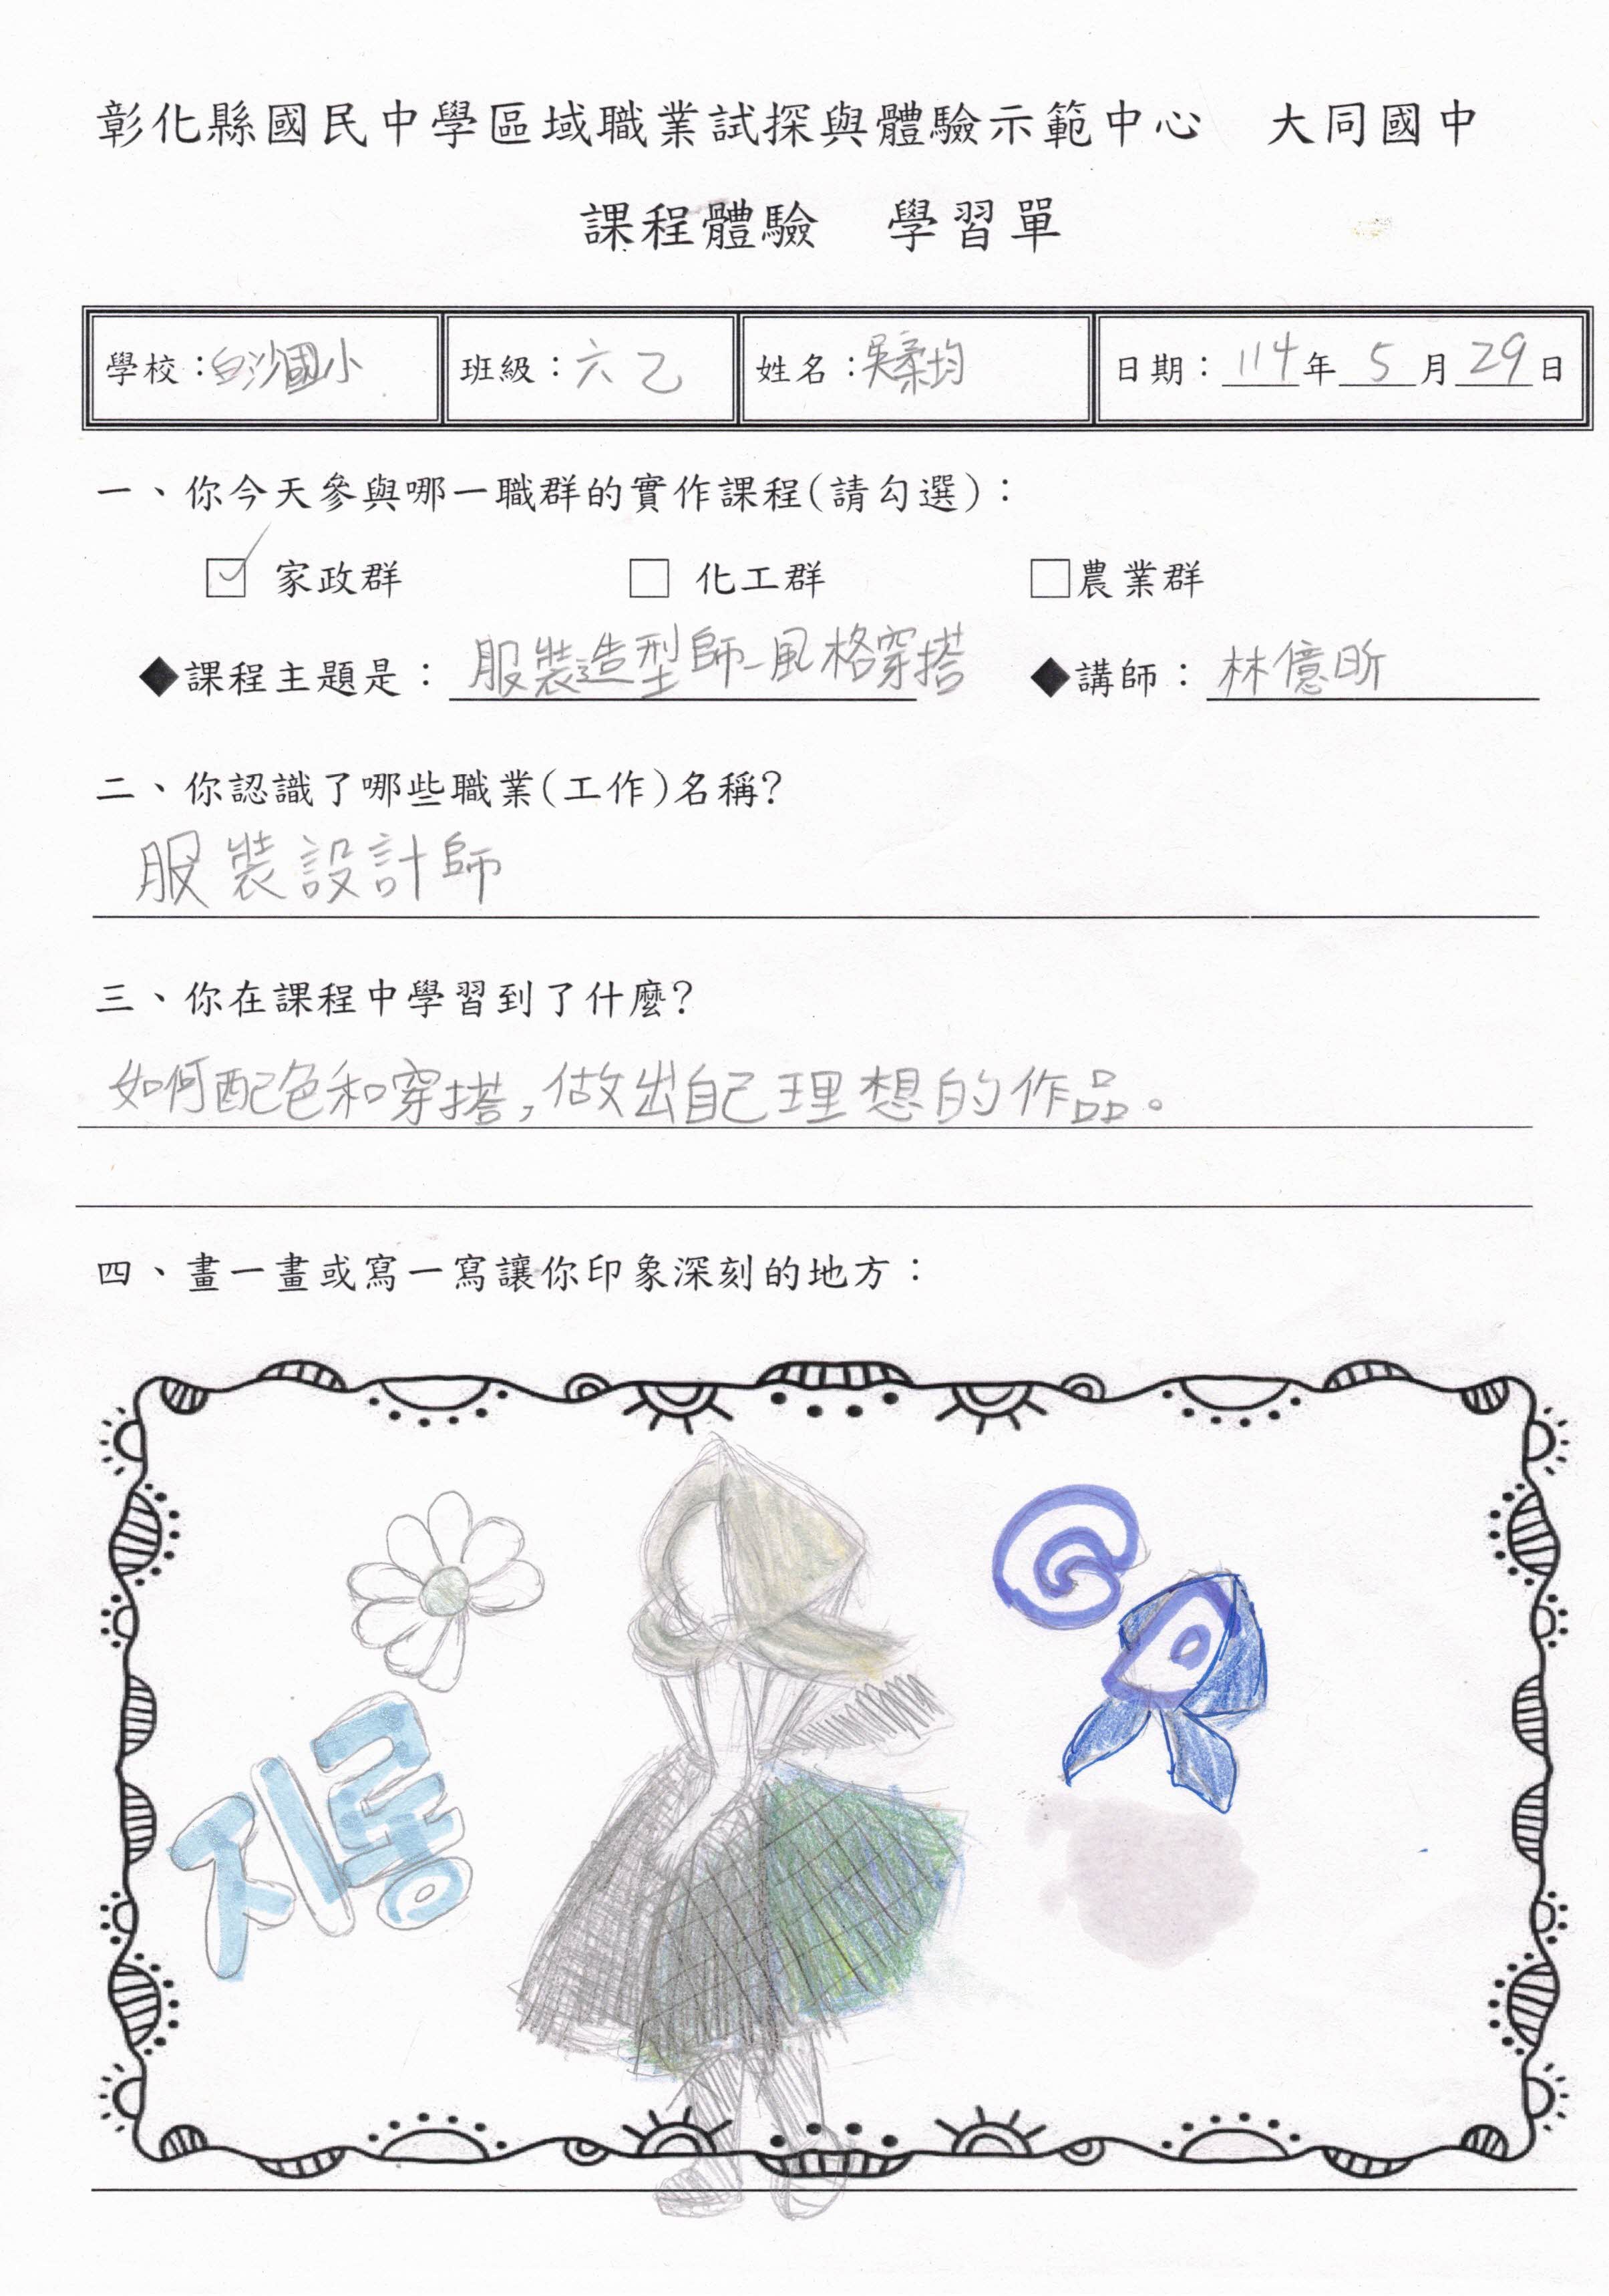 彰化縣國民中學區域職業試探與體驗示範中心 大同國中
課程體驗 學習單
學校：白沙國小 班級：六乙 姓名：吳柔均 日期：114年5月29日
一、你今天參與哪一職群的實作課程(請勾選)：
☑ 家政群 □ 化工群 □農業群
◆課程主題是：服裝造型師-風格穿搭 ◆講師：林億昕
二、你認識了哪些職業(工作)名稱?
服裝設計師
三、你在課程中學習到了什麼?
如何配色和穿搭,做出自己理想的作品。
四、畫一畫或寫一寫讓你印象深刻的地方：
지롱